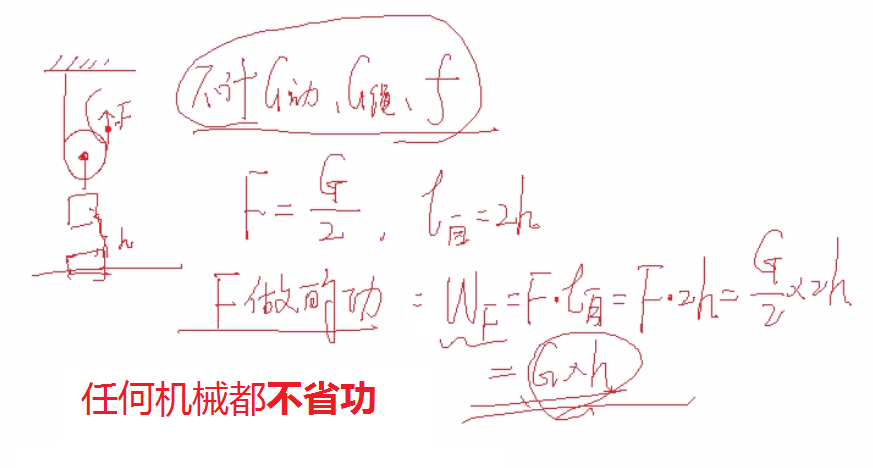 不计G动、G绳、f
F
F = G/2, l自 = 2h
h
F做的功 = W_F = F·l自 = F·2h = G/2 × 2h
= G×h
任何机械都不省功